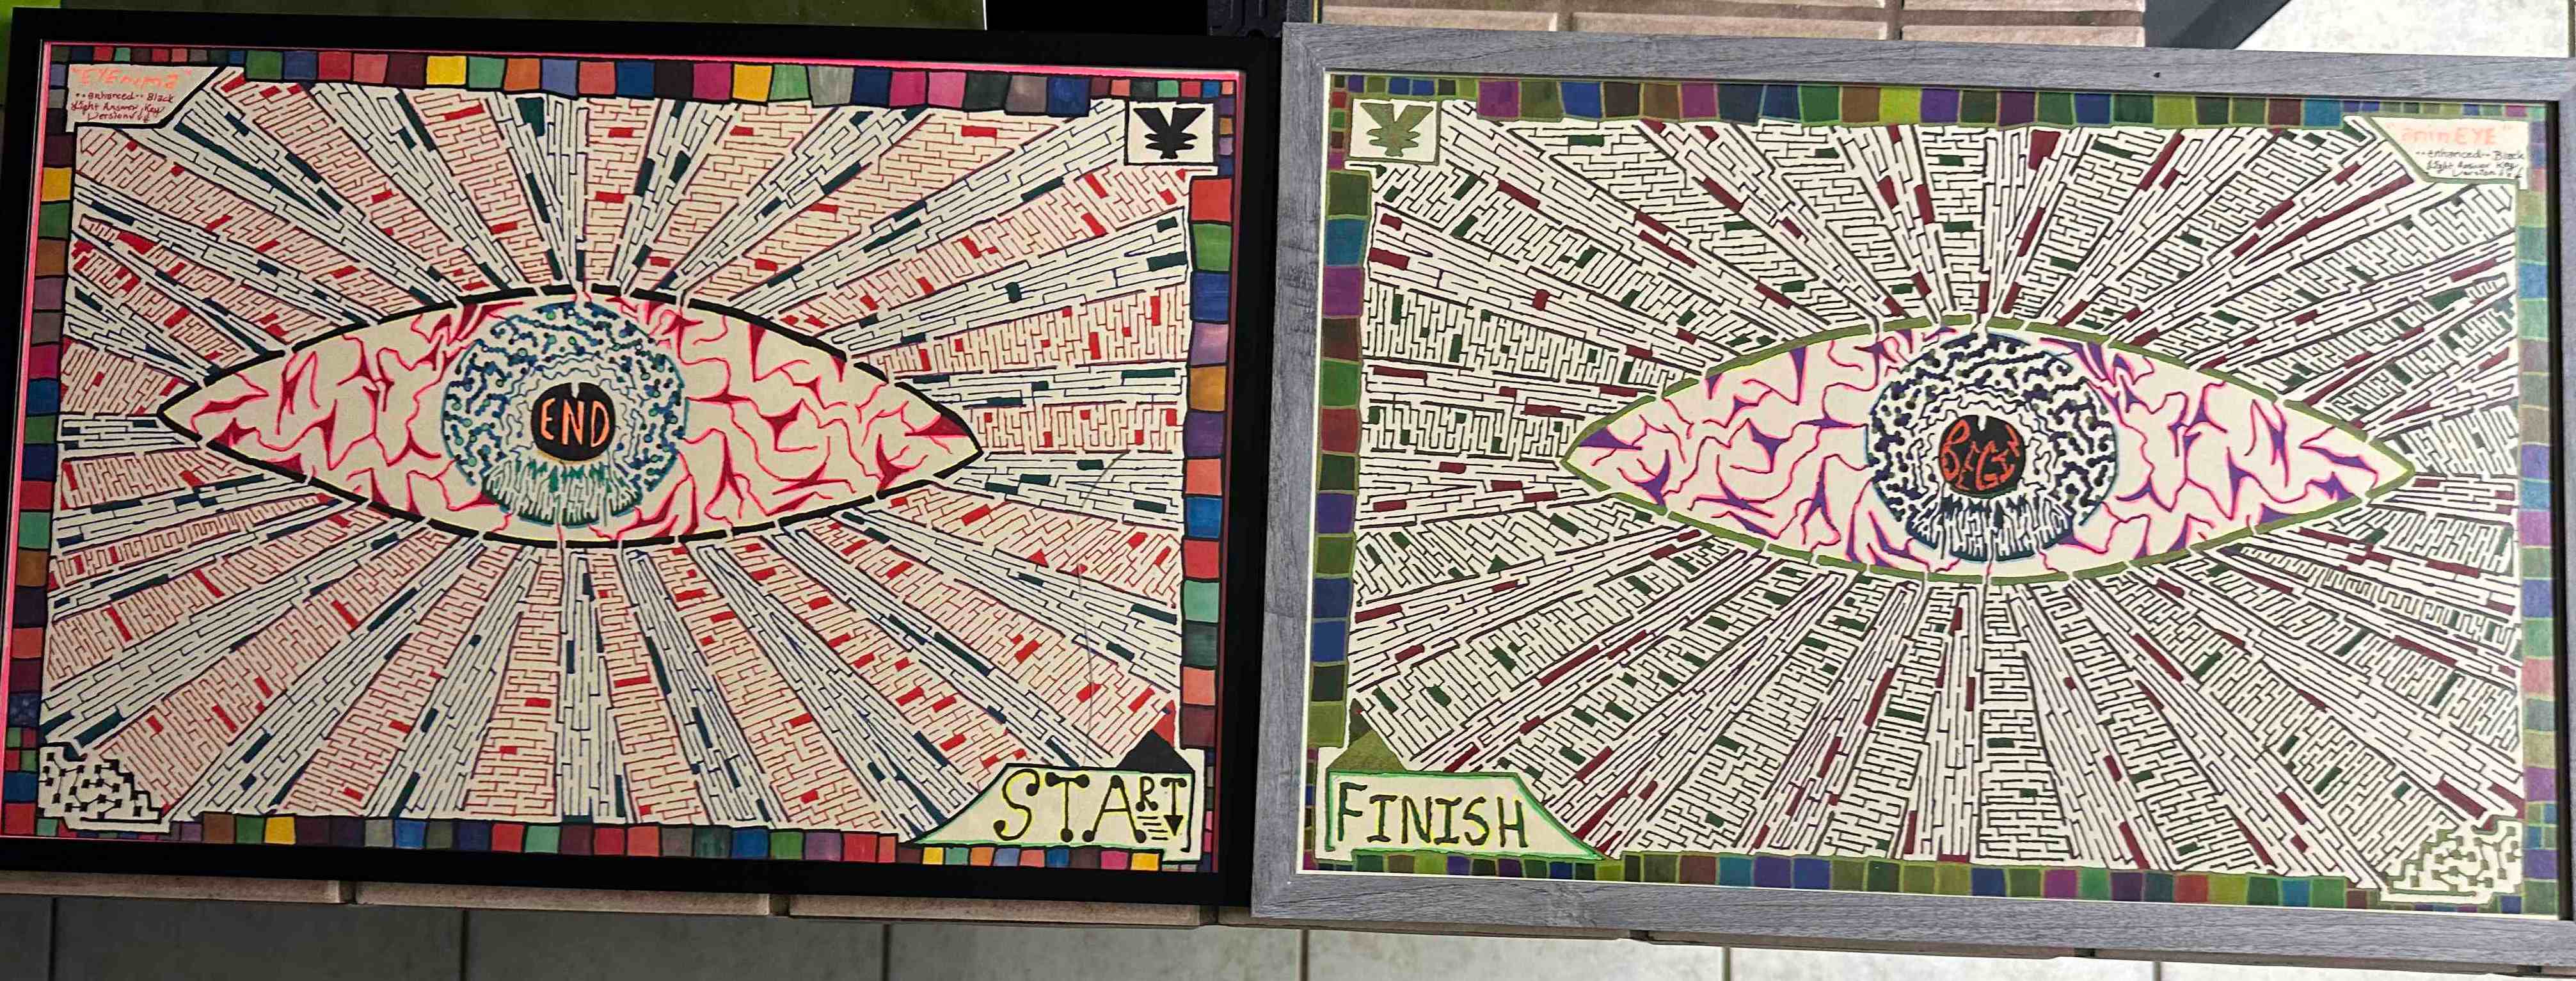 "EYEnima"
..enhanced.. Black
Light Answer Key
Version
END
START
"aminEYE"
..enhanced.. Black
Light Answer Key
Version
BEGIN
FINISH